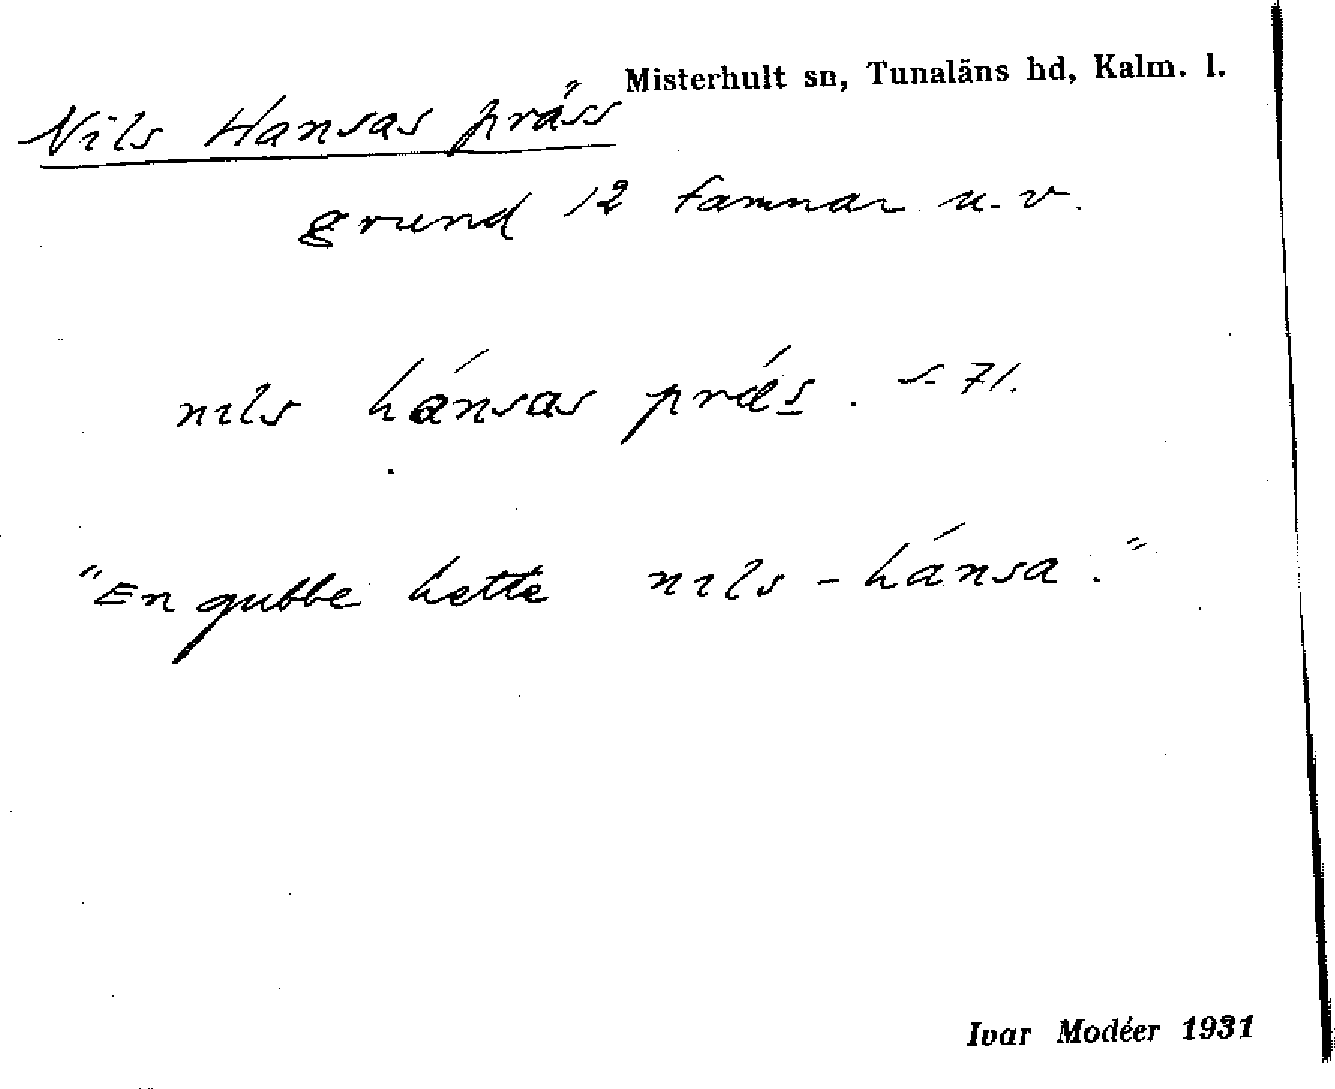 Misterhult sn, Tunaläns hd, Kalm. l.
Nils Hansas präss
grund 12 famnar u. v.
nils hánsas prás. s. 71.
"En gubbe hette nils-hánsa."
Ivar Modéer 1931